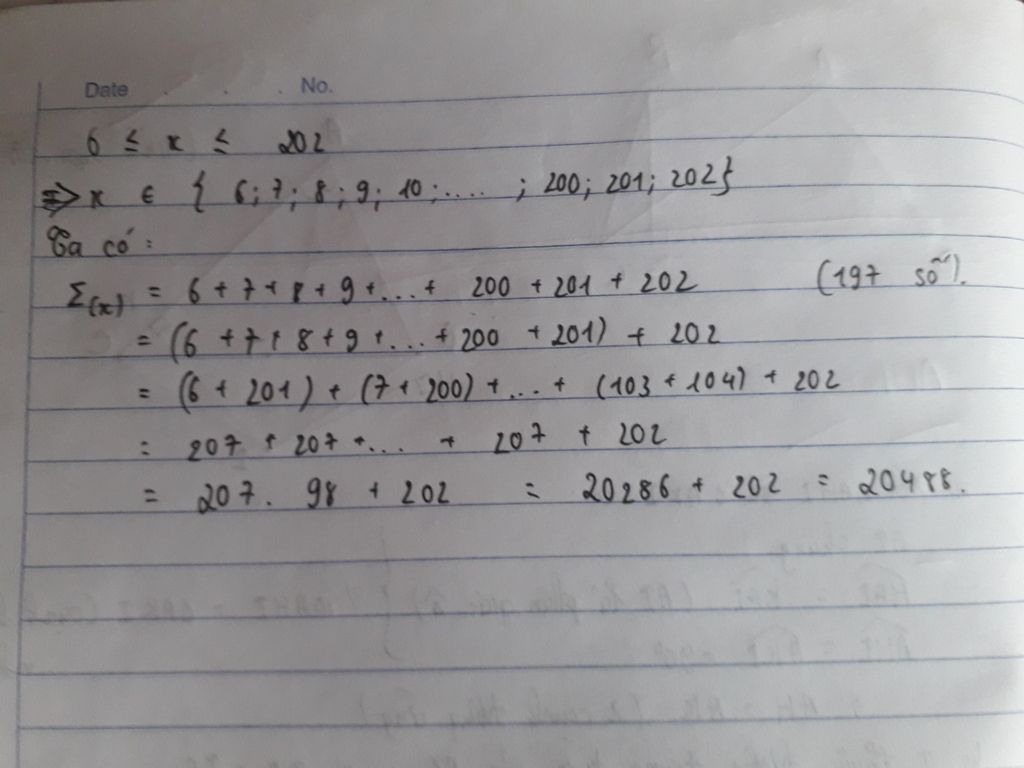 Date . . . No.
6 ≤ x ≤ 202
=> x ∈ { 6; 7; 8; 9; 10; .... ; 200; 201; 202}
Ta có:
Σ(x) = 6 + 7 + 8 + 9 + ... + 200 + 201 + 202 (197 số).
= (6 + 7 + 8 + 9 + ... + 200 + 201) + 202
= (6 + 201) + (7 + 200) + ... + (103 + 104) + 202
= 207 + 207 + ... + 207 + 202
= 207. 98 + 202 = 20286 + 202 = 20488.